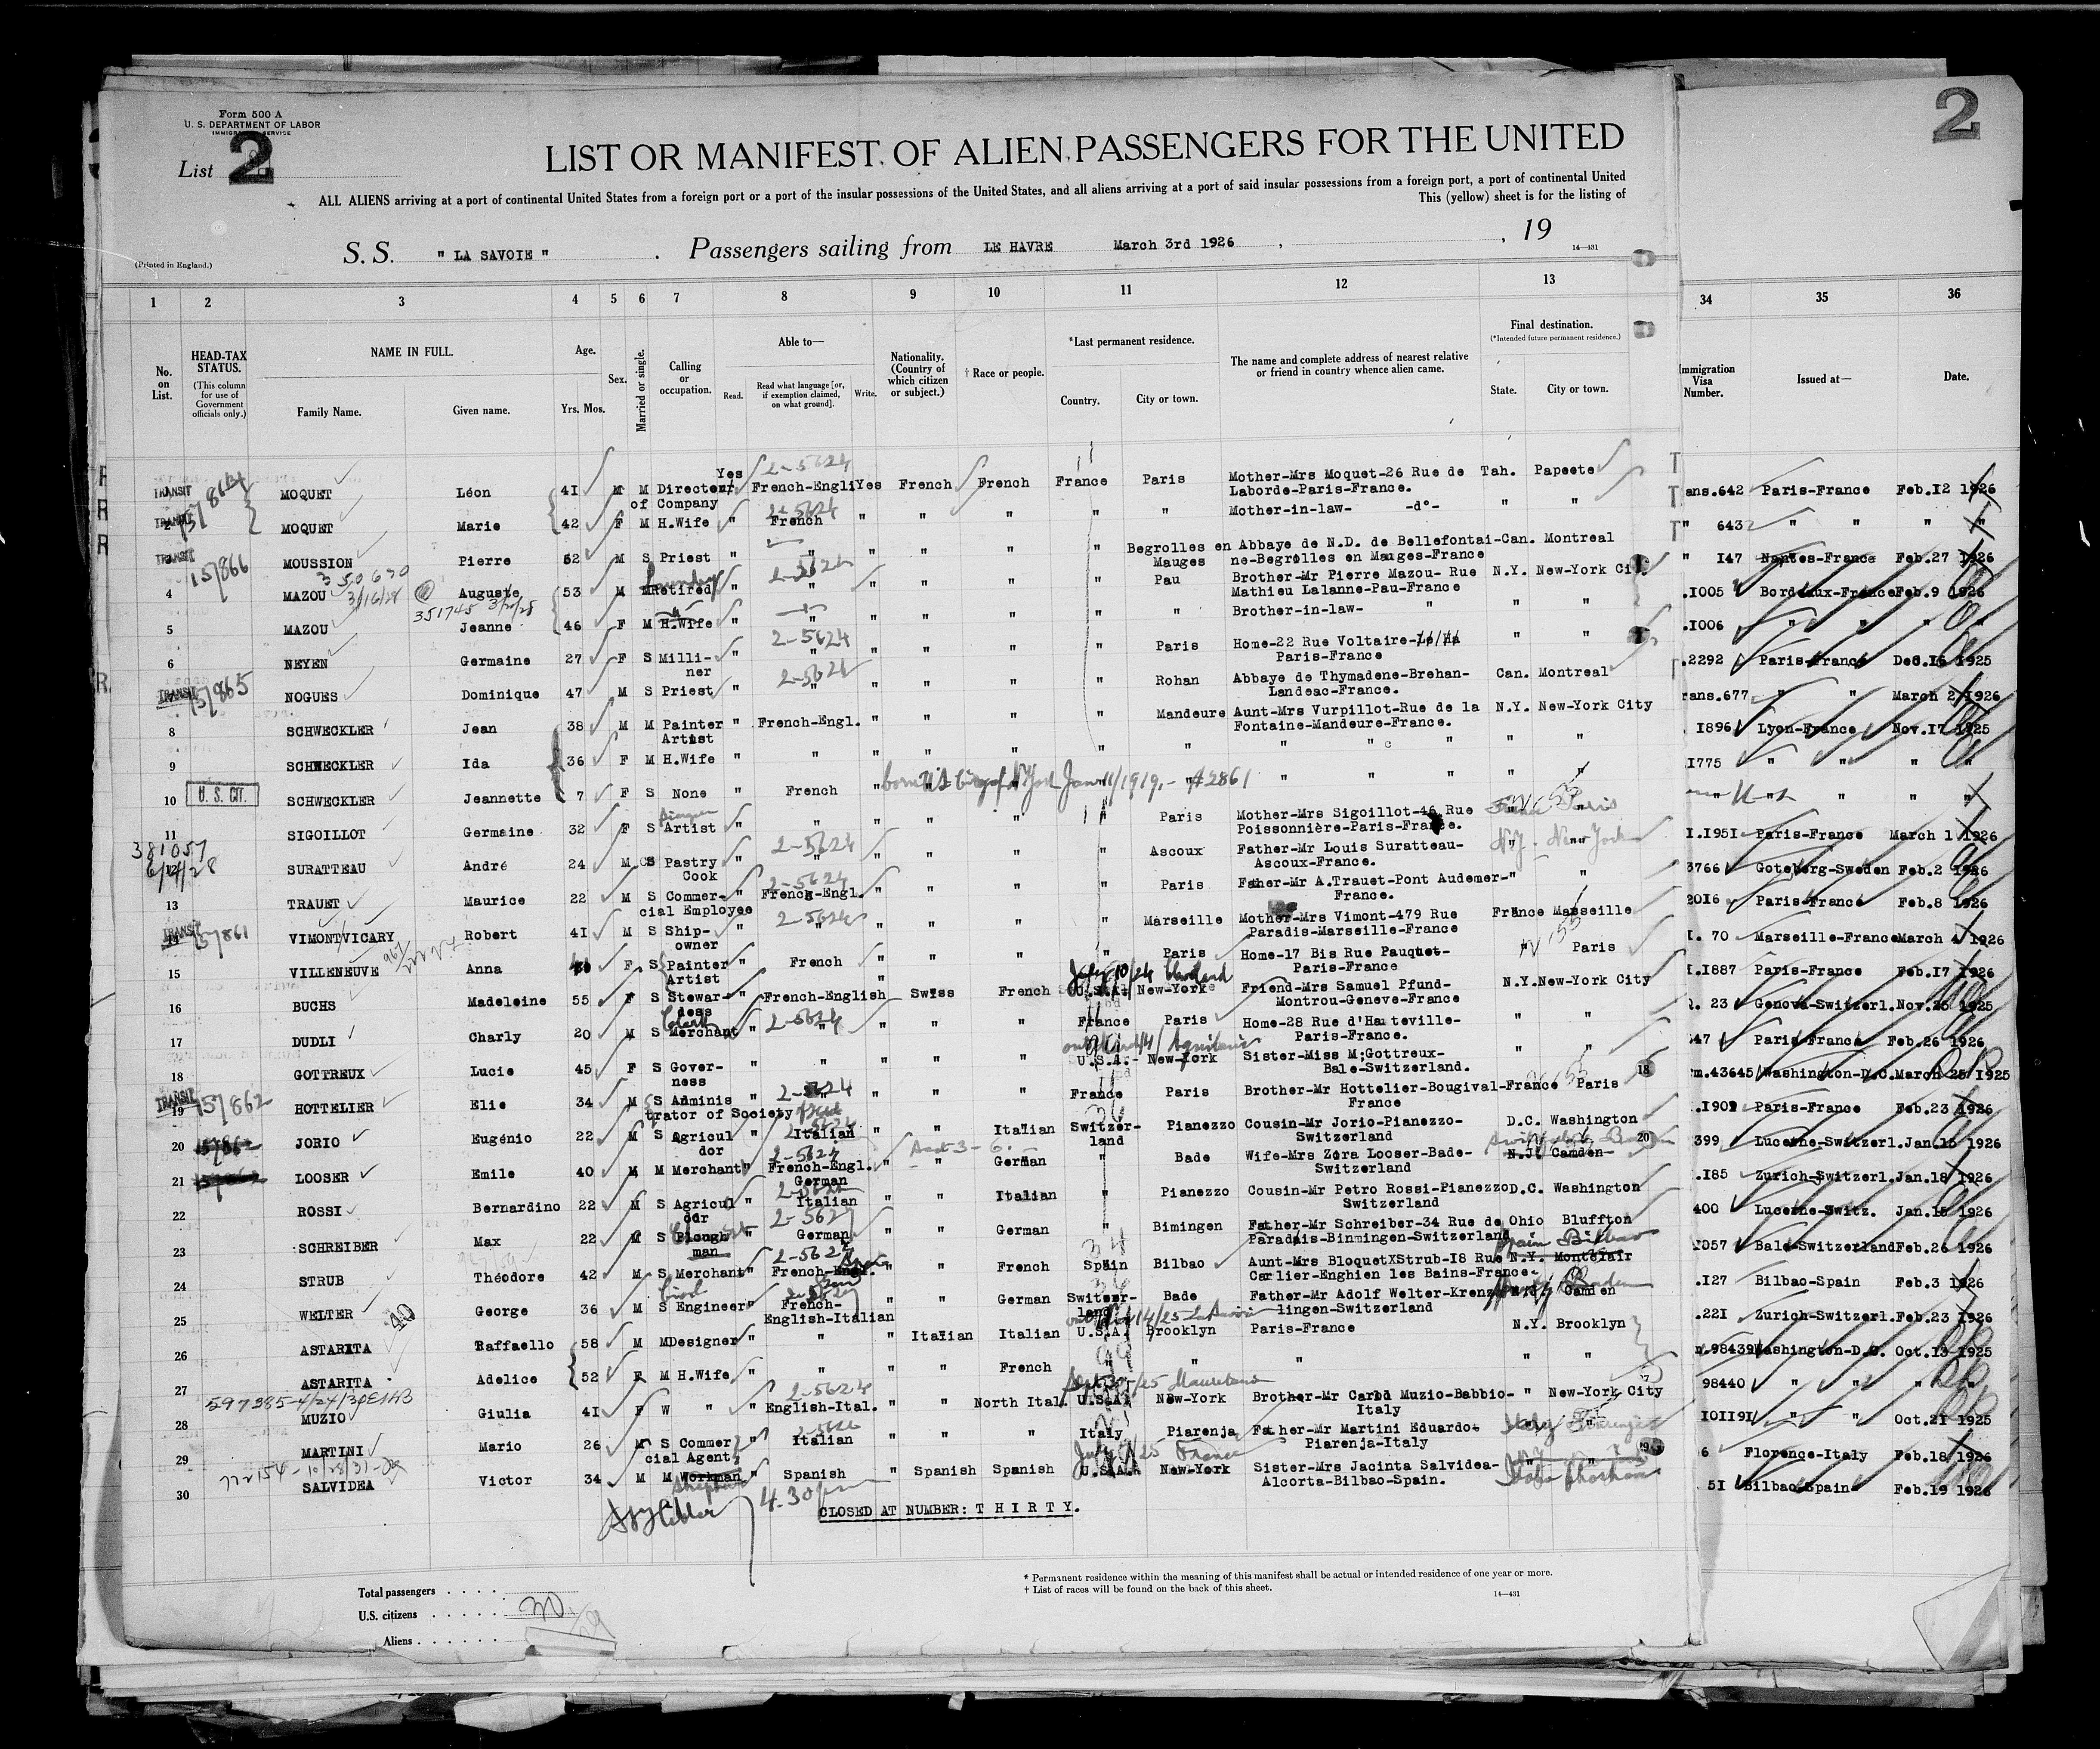 Form 500 A
U. S. DEPARTMENT OF LABOR
IMMIGRATION SERVICE
List 2
2
LIST OR MANIFEST OF ALIEN PASSENGERS FOR THE UNITED
ALL ALIENS arriving at a port of continental United States from a foreign port or a port of the insular possessions of the United States, and all aliens arriving at a port of said insular possessions from a foreign port, a port of continental United
This (yellow) sheet is for the listing of
S. S. " LA SAVOIE " . Passengers sailing from LE HAVRE March 3rd 1926 , , 19
14—431
(Printed in England.)
1 2 3 4 5 6 7 8 9 10 11 12 13 34 35 36
No. on List.
HEAD-TAX STATUS.
(This column for use of Government officials only.)
NAME IN FULL.
Family Name. Given name.
Age.
Yrs. Mos.
Sex.
Married or single.
Calling or occupation.
Able to—
Read. Read what language [or, if exemption claimed, on what ground]. Write.
Nationality. (Country of which citizen or subject.)
† Race or people.
*Last permanent residence.
Country. City or town.
The name and complete address of nearest relative or friend in country whence alien came.
Final destination.
(*Intended future permanent residence.)
State. City or town.
Immigration Visa Number.
Issued at—
Date.
TRANSIT 157864 MOQUET Léon 41 M M Director of Company Yes French-Engli Yes French French France Paris Mother-Mrs Moquet-26 Rue de Laborde-Paris-France. Tah. Papeete ans.642 Paris-France Feb.12 1926
2 TRANSIT MOQUET Marie 42 F M H.Wife " French " " " " " Mother-in-law- -d°- " " " 643 " " " "
TRANSIT 157866 MOUSSION Pierre 52 M S Priest " " " " " " Begrolles en Mauges Abbaye de N.D. de Bellefontai-ne-Begrolles en Mauges-France Can. Montreal " 147 Nantes-France Feb.27 1926
4 MAZOU 350690 3/16/28 Auguste 53 M M Retired " " " " " " Pau Brother-Mr Pierre Mazou- Rue Mathieu Lalanne-Pau-France N.Y. New-York Ci .1005 Bordeaux-France Feb.9 1926
5 MAZOU 351748 3/20/28 Jeanne 46 F M H.Wife " " " " " " " Brother-in-law- " " " .1006 " " " "
6 NEYEN Germaine 27 F S Milliner " " " " " " Paris Home-22 Rue Voltaire- Paris-France " " .2292 Paris-France Dec.16 1925
TRANSIT 157865 NOGUES Dominique 47 M S Priest " " " " " " Rohan Abbaye de Thymadene-Brehan-Landeac-France. Can. Montreal rans.677 " " March 2 1926
8 SCHWECKLER Jean 38 M M Painter Artist " French-Engl. " " " " Mandeure Aunt-Mrs Vurpillot-Rue de la Fontaine-Mandeure-France. N.Y. New-York City 1896 Lyon-France Nov.17 1925
9 SCHWECKLER Ida 36 F M H.Wife " " " " " " " " " " " " 1775 " " " "
10 U. S. CIT. SCHWECKLER Jeannette 7 F S None " French " " " " " " " " " " " " " "
11 SIGOILLOT Germaine 32 F S Artist " " " " " " Paris Mother-Mrs Sigoillot-46 Rue Poissonnière-Paris-France. France Paris I.1951 Paris-France March 1 1926
381057 6/12/28 SURATTEAU André 24 M S Pastry Cook " " " " " " Ascoux Father-Mr Louis Suratteau-Ascoux-France. N.Y. New York 3766 Goteberg-Sweden Feb.2 1926
13 TRAUET Maurice 22 M S Commercial Employee " French-Engl. " " " " Paris Father-Mr A.Trauet-Pont Audemer-France. " " 2016 Paris-France Feb.8 1926
14 TRANSIT 157861 VIMONTVICARY Robert 41 M S Ship-owner " " " " " " Marseille Mother-Mrs Vimont-479 Rue Paradis-Marseille-France France Marseille I. 70 Marseille-France March 4 1926
15 VILLENEUVE Anna F S Painter Artist " French " " " " Paris Home-17 Bis Rue Pauquet-Paris-France " Paris I.1887 Paris-France Feb.17 1926
16 BUCHS Madeleine 55 F S Stewardess " French-English " Swiss French U.S.A. New-York Friend-Mrs Samuel Pfund-Montrou-Geneve-France N.Y. New-York City Q. 23 Genova-Switzerl. Nov.26 1925
17 DUDLI Charly 20 M S Merchant " " " " " France Paris Home-28 Rue d'Hauteville-Paris-France. " " 347 Paris-France Feb.26 1926
18 GOTTREUX Lucie 45 F S Governess " " " " " U.S.A.- New-York Sister-Miss M;Gottreux-Bale-Switzerland. " " m.43645 Washington-D.C. March 25 1925
19 TRANSIT 157862 HOTTELIER Elie 34 M S Administrator of Society " " " " " France Paris Brother-Mr Hottelier-Bougival-France France Paris .1902 Paris-France Feb.23 1926
20 JORIO Eugénio 22 M S Agriculdor " Italian " " Italian Switzerland Pianezzo Cousin-Mr Jorio-Pianezzo-Switzerland D.C. Washington 399 Lucerne-Switzerl. Jan.15 1926
21 LOOSER Emile 40 M M Merchant " French-Engl. German " " German " Bade Wife-Mrs Zora Looser-Bade-Switzerland N.J. Camden- .185 Zurich-Switzerl. Jan.18 1926
22 ROSSI Bernardino 22 M S Agriculdor " Italian " " Italian " Pianezzo Cousin-Mr Petro Rossi-Pianezzo Switzerland D.C. Washington 400 Lucerne-Switz. Jan.15 1926
23 SCHREIBER Max 22 M S Ploughman " German " " German " Bimingen Father-Mr Schreiber-34 Rue de Paradis-Binmingen-Switzerland Ohio Bluffton 1057 Bale-Switzerland Feb.26 1926
24 STRUB Théodore 42 M S Merchant " French-Engl. " " French Spain Bilbao Aunt-Mrs BloquetXStrub-18 Rue Carlier-Enghien les Bains-France. N.Y. Montclair Spain Bilbao .127 Bilbao-Spain Feb.3 1926
25 WELTER George 36 M S Engineer " French-English-Italian " " German Switzerland Bade Father-Mr Adolf Welter-Krenz lingen-Switzerland Camden .221 Zurich-Switzerl. Feb.23 1926
26 ASTARITA Raffaello 58 M M Designer " " " Italian Italian U.S.A. Brooklyn Paris-France N.Y. Brooklyn 98439 Washington-D.C. Oct.13 1925
27 ASTARITA Adelice 52 F M H.Wife " " " " French " " " " " 98440 " " " "
28 MUZIO Giulia 41 F W " " English-Ital. " " North Ital. U.S.A. New-York Brother-Mr Carlo Muzio-Babbio-Italy " New-York City 101191 " " Oct.21 1925
29 MARTINI Mario 26 M S Commercial Agent " Italian " " " Italy Piarenja Father-Mr Martini Eduardo-Piarenja-Italy 6 Florence-Italy Feb.18 1926
30 772154-10/28/31 SALVIDEA Victor 34 M M Workman " Spanish " Spanish Spanish U.S.A. New-York Sister-Mrs Jacinta Salvidea-Alcorta-Bilbao-Spain. 51 Bilbao-Spain Feb.19 1926
4.30 pm
CLOSED AT NUMBER: T H I R T Y.
* Permanent residence within the meaning of this manifest shall be actual or intended residence of one year or more.
† List of races will be found on the back of this sheet.
14—431
Total passengers . . . .
U.S. citizens . . . . .
Aliens . . . . . .